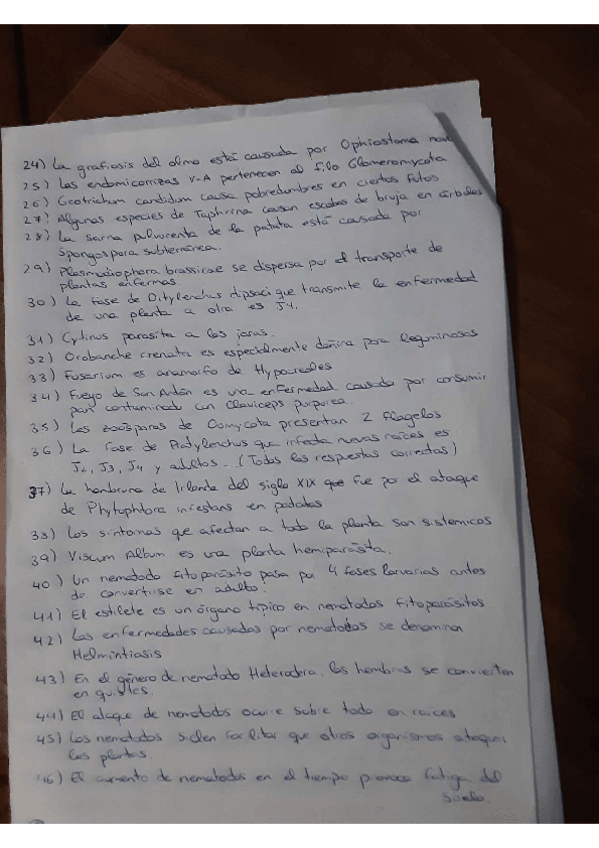 24) La grafiosis del olmo está causada por Ophiostoma novo
25) Las endomicorrizas V-A pertenecen al filo Glomeromycota
26) Geotrichum candidum causa pobredumbres en ciertos frutos
27) Algunas especies de Taphrina causan escobas de bruja en árboles
28) La sarna pulverenta de la patata está causada por
Spongospora subterránea.
29) Plasmodiophora brassicae se dispersa por el transporte de
plantas enfermas
30) La fase de Ditylenchus dipsaci que transmite la enfermedad
de una planta a otra es J4.
31) Cytinus parasita a las jaras.
32) Orobanche crenata es especialmente dañina para leguminosas
33) Fusarium es anamorfo de Hypocreales
34) Fuego de San Antón es una enfermedad causada por consumir
pan contaminado con Claviceps purpurea.
35) Las zoósporas de Oomycota presentan 2 flagelos
36) La fase de Pratylenchus que infecta nuevas raíces es
J2, J3, J4 y adultos. (Todas las respuestas correctas)
37) La hambruna de Irlanda del siglo XIX que fue por el ataque
de Phytophtora infestans en patatas
38) Los síntomas que afectan a toda la planta son sistémicos
39) Viscum Album es una planta hemiparásita.
40) Un nematodo fitoparásito pasa por 4 fases larvarias antes
de convertirse en adulto.
41) El estilete es un órgano típico en nematodos fitoparásitos
42) Las enfermedades causadas por nematodos se denominan
Helmintiasis
43) En el género de nematodo Heterodera, las hembras se convierten
en quistes.
44) El ataque de nematodos ocurre sobre todo en raíces
45) Los nematodos suelen facilitar que otros organismos ataquen
las plantas.
46) El aumento de nematodos en el tiempo provoca fatiga del
suelo.